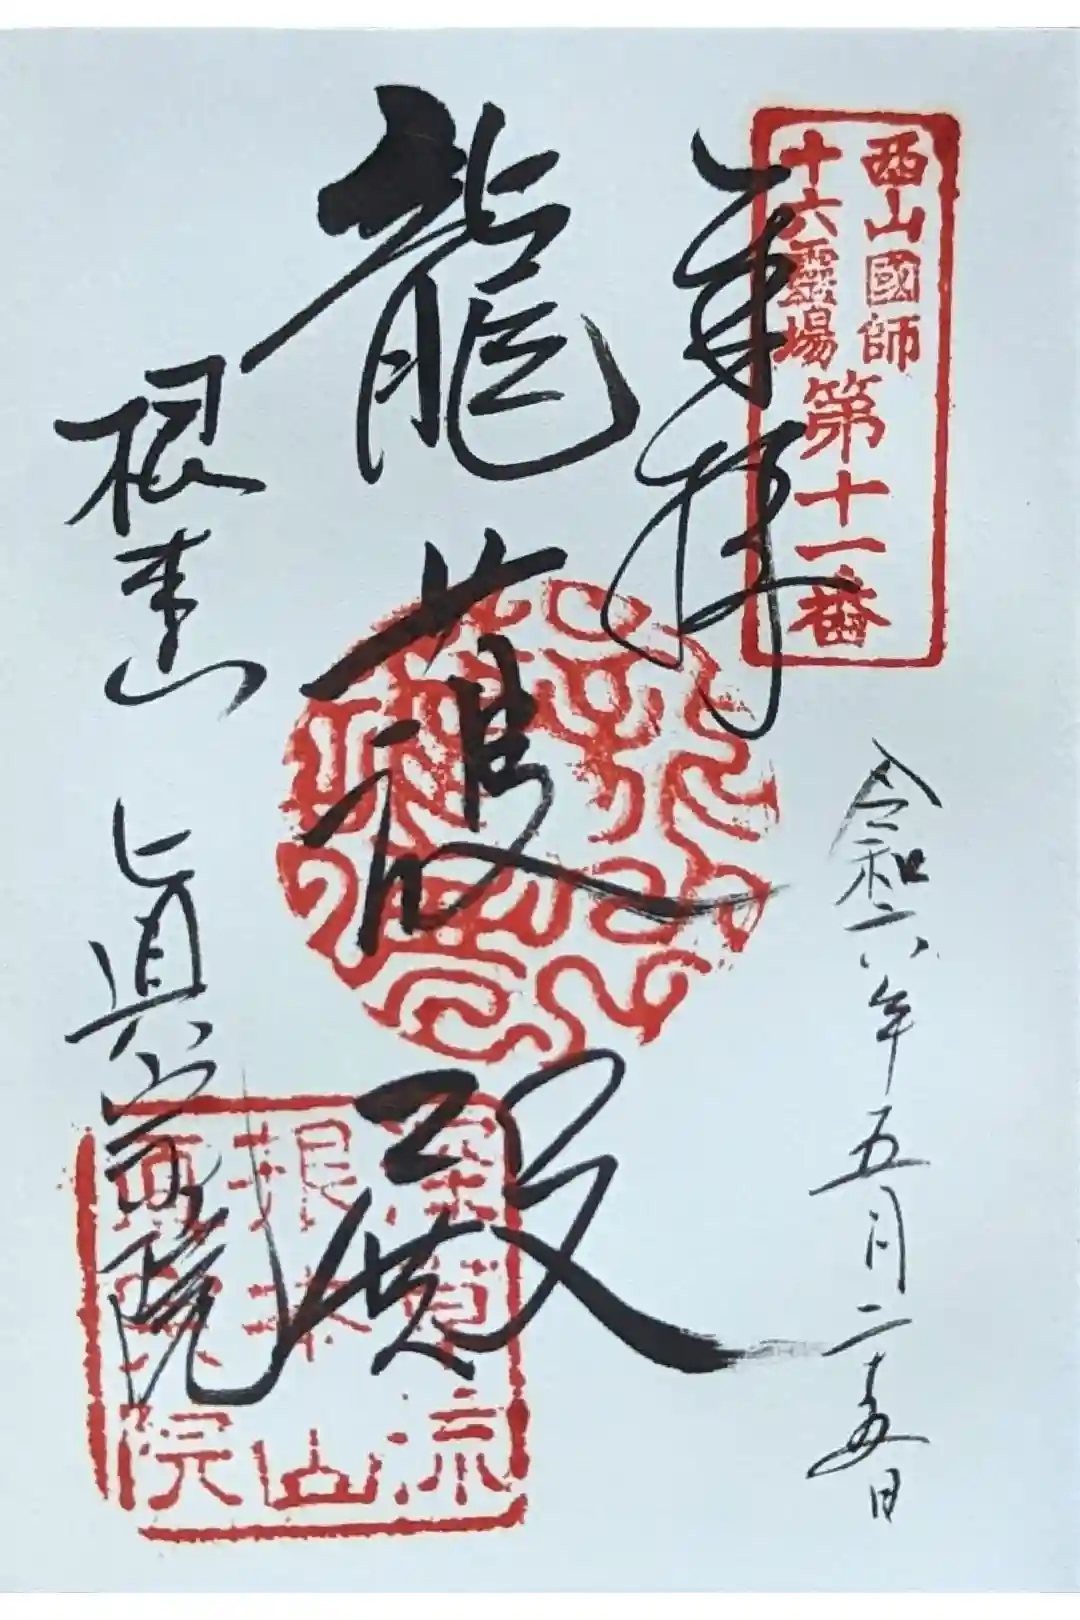 西山國師
十六靈場
第十一番
奉拝
令和六年五月二十五日
龍護殿
根来山
眞宗院
深草流
根来山
真宗院